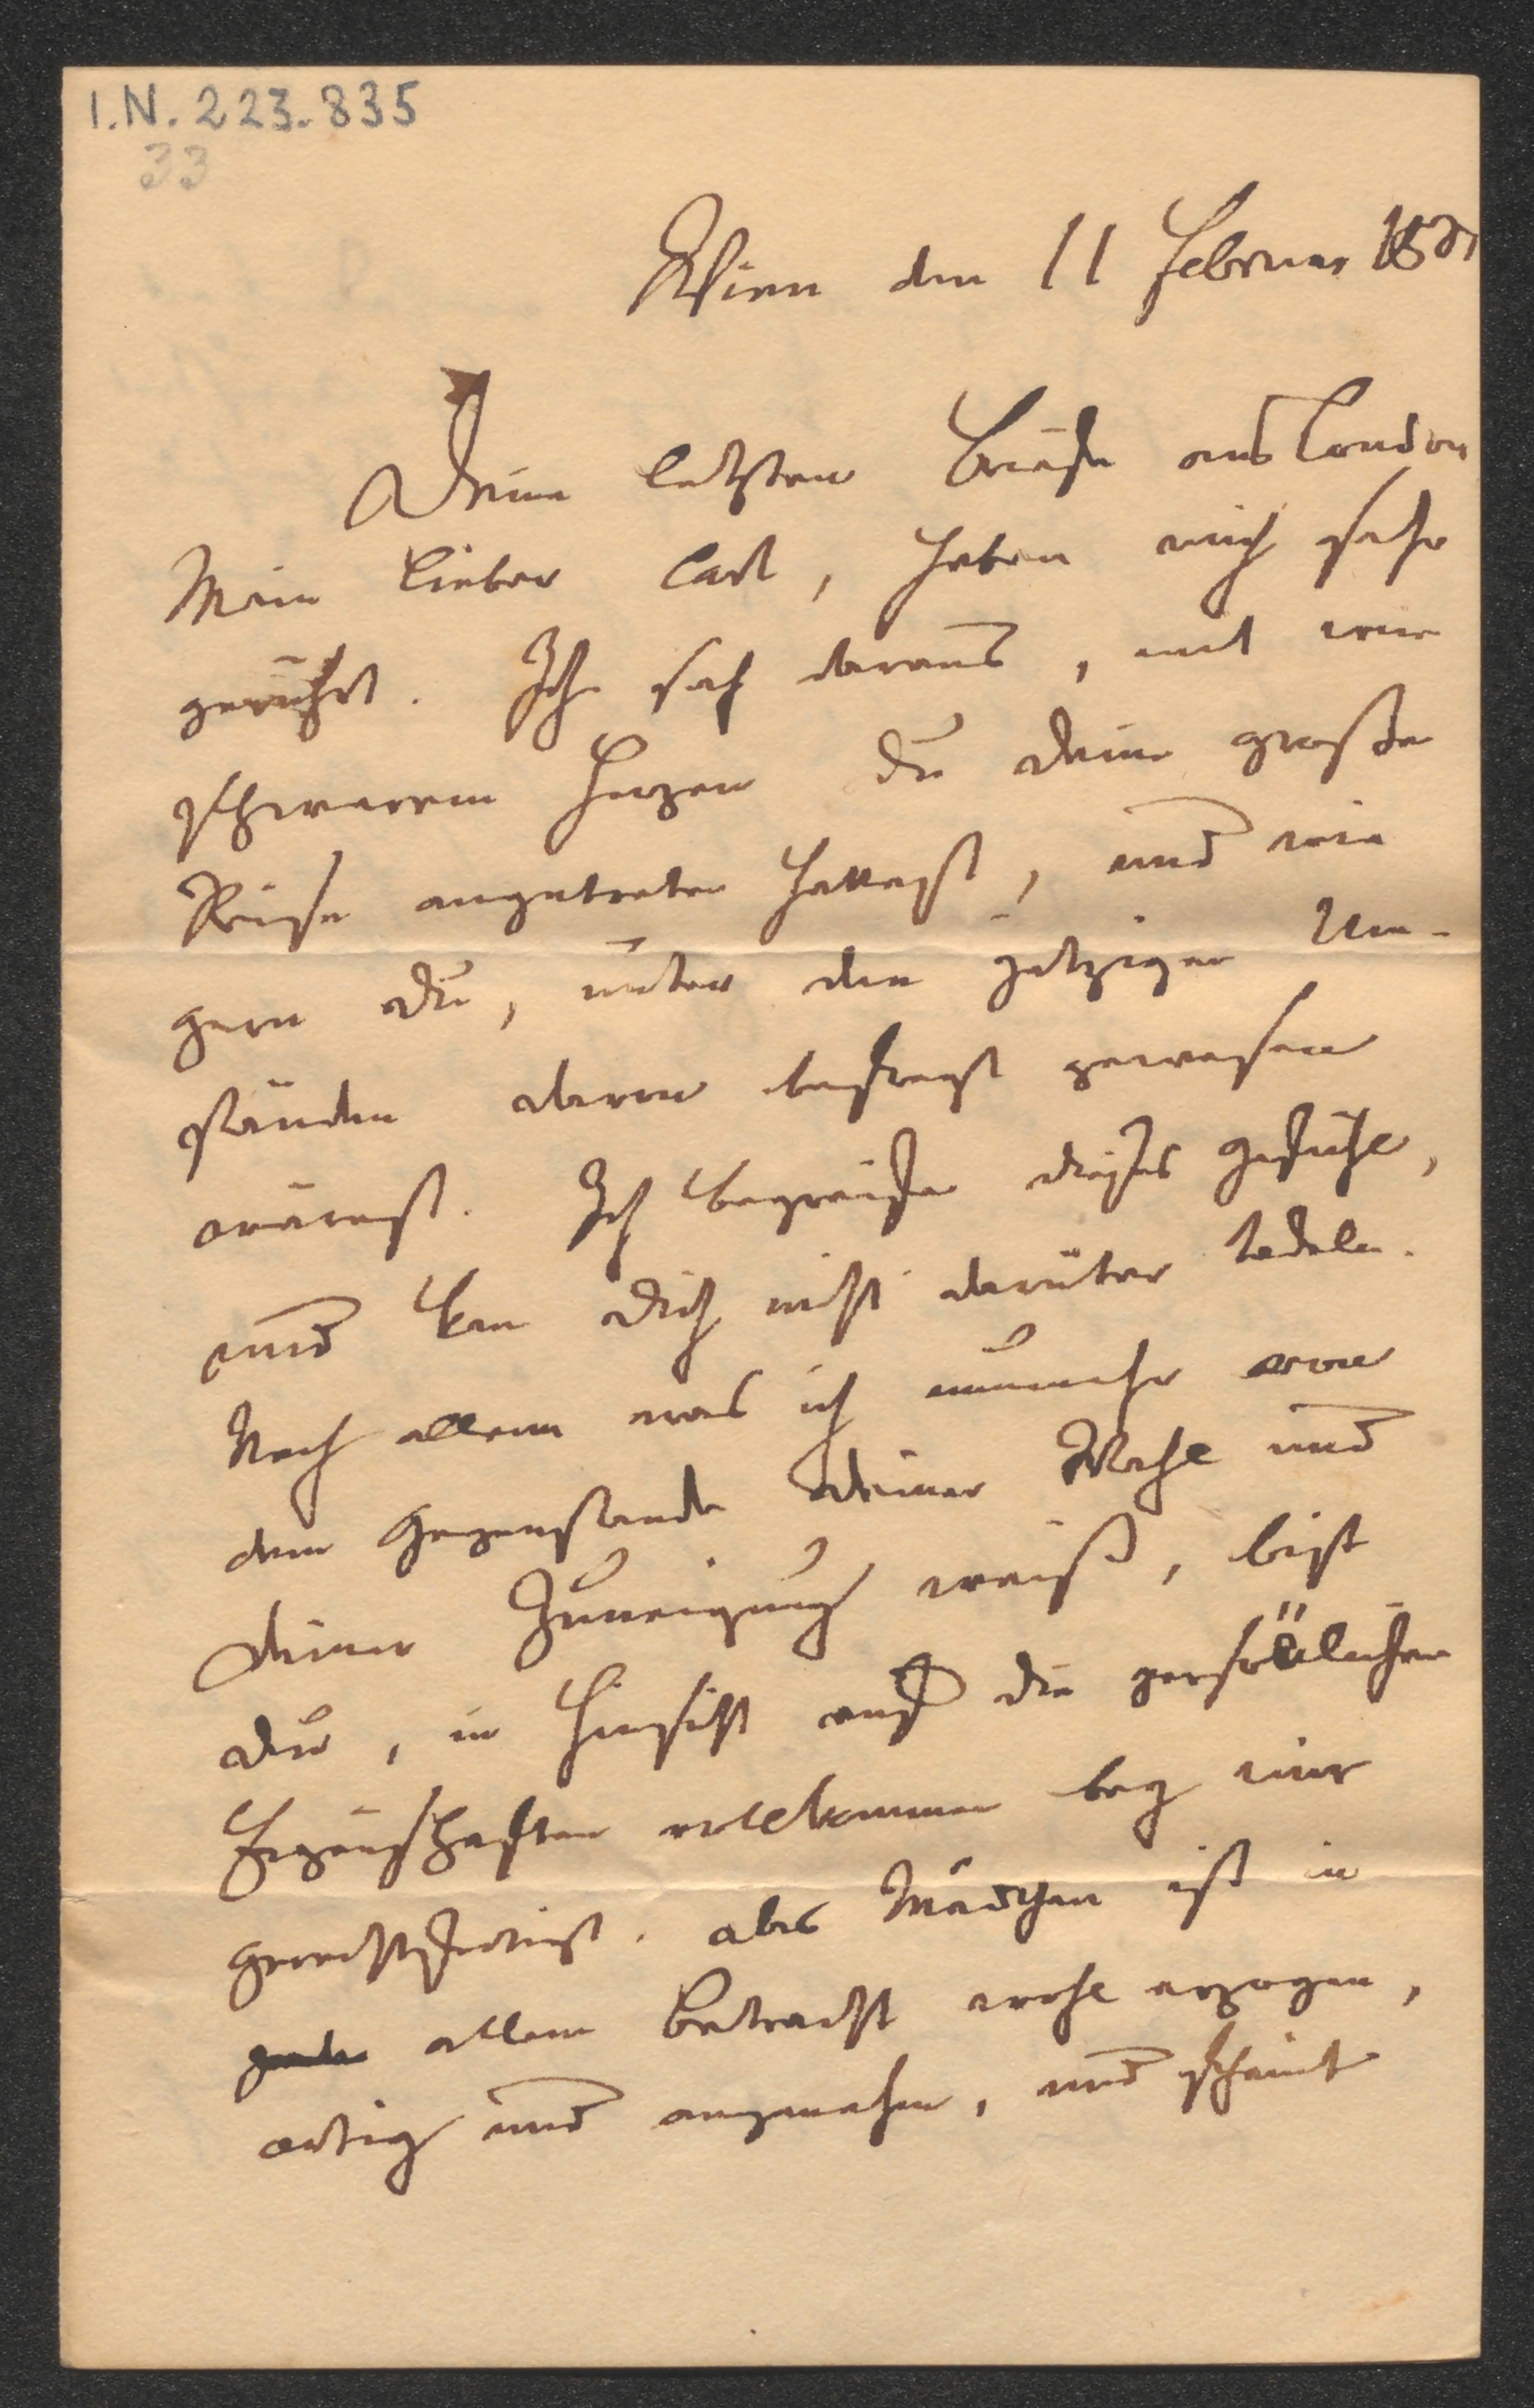 I.N. 223.835
33
Wien den 11 Februar 1871
Deine letzten Briefe aus London
Mein lieber Carl, haben mich sehr
gerührt. Ich sah daraus, mit wie
schwerem Herzen du deine große
Reise angetreten hattest, und wie
gern du, unter den jetzigen Um-
ständen davon befreyt gewesen
wärest. Ich begreife dieses Gefühl,
und kan dich nicht darüber tadeln.
Nach allem was ich nunmehr von
dem Gegenstande deiner Wahl und
deiner Zuneigung weiß, bist
du, in Hinsicht auf die persönlichen
Eigenschaften vollkommen bey mir
gerechtfertigt. das Mädchen ist in
allem Betracht wohl erzogen,
artig und angenehm, und scheint